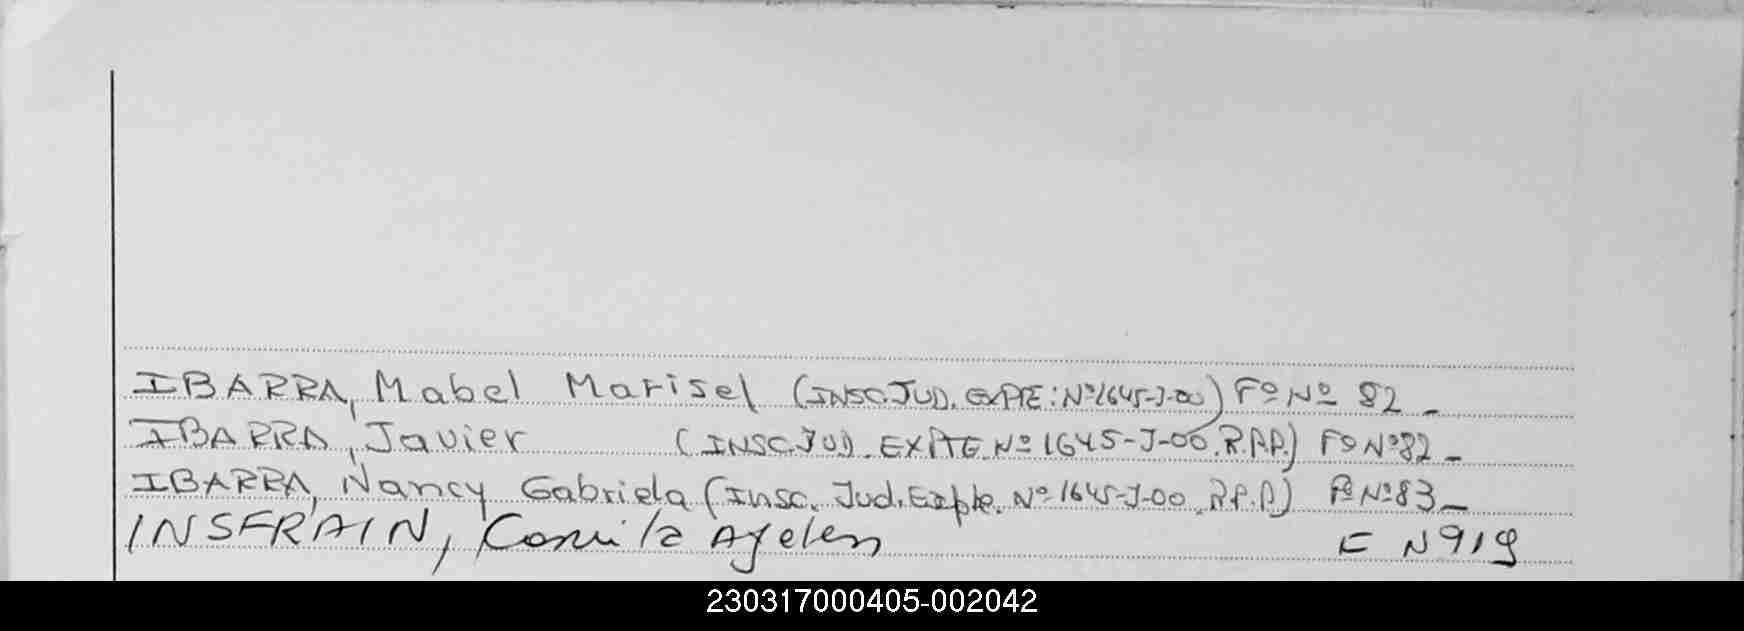 IBARRA, Mabel Marisel (INSC.JUD. EXPTE: Nº1645-J-00) Fº Nº 82 -
IBARRA, Javier (INSC.JUD. EXPTE Nº 1645-J-00.R.P.A.) Fº Nº82 -
IBARRA, Nancy Gabriela (Insc. Jud. Expte. Nº 1645-J-00 .R.P.A) Fº Nº83 -
INSFRAIN, Camila Ayelen F Nº19
230317000405-002042